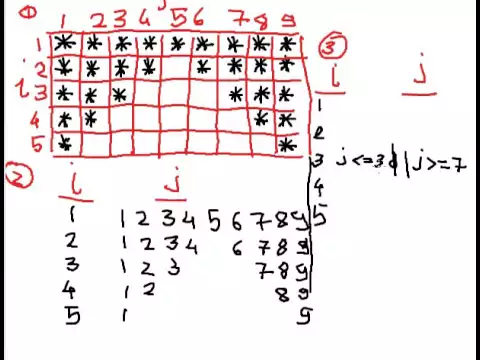 ① 1 2 3 4 j 5 6 7 8 9
1 * * * * * * * * *
i 2 * * * * * * * *
3 * * * * * *
4 * * * *
5 * *
② i j
1 1 2 3 4 5 6 7 8 9
2 1 2 3 4 6 7 8 9
3 1 2 3 7 8 9
4 1 2 8 9
5 1 9
③ i j
1
2
3 j<=3 || j>=7
4
5